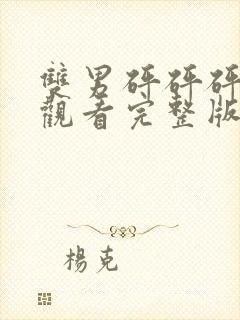 雙男砰砰砰
觀看完整版
楊克